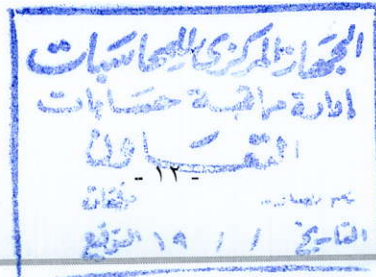 الجهاز المركزى للمحاسبات
إدارة مراقبة حسابات
التعاون
- ١٢ -
التاريخ / / ١٩ التوقيع